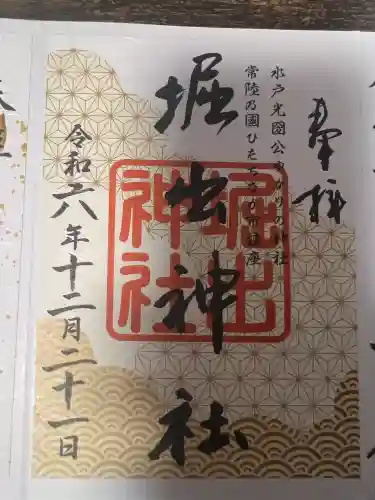 奉拝
水戸光圀公ゆかりの神社
常陸乃國ひたちなか市鎮座
堀出神社
堀出
神社
令和六年十二月二十一日